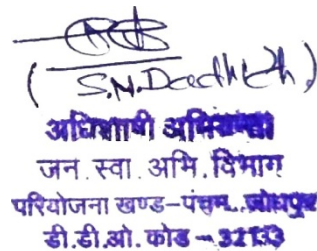 ( S.N. Dadhich )
अधिशाषी अभियन्ता
जन . स्वा . अभि . विभाग
परियोजना खण्ड-पंचम.. जोधपुर
डी.डी.ओ. कोड - 32133